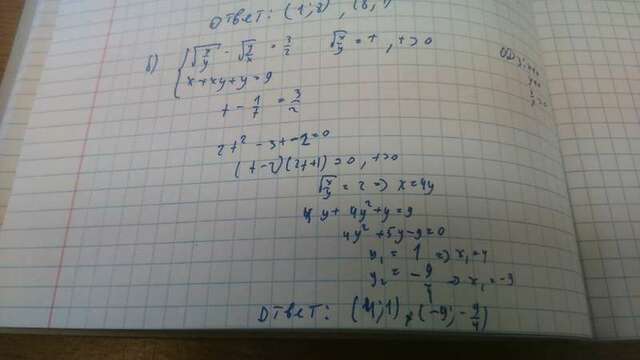 Ответ: (1;8), (8;1
б) { √x/y - √y/x = 3/2   √x/y = t, t>0
x+xy+y=9
t - 1/t = 3/2
2t² - 3t - 2=0
(t-2)(2t+1)=0, t>0
√x/y = 2 => x=4y
4y + 4y²+y=9
4y² +5y-9=0
y₁ = 1 => x₁=4
y₂ = -9/4 => x₁=-9
Ответ: (4;1), (-9; -9/4)